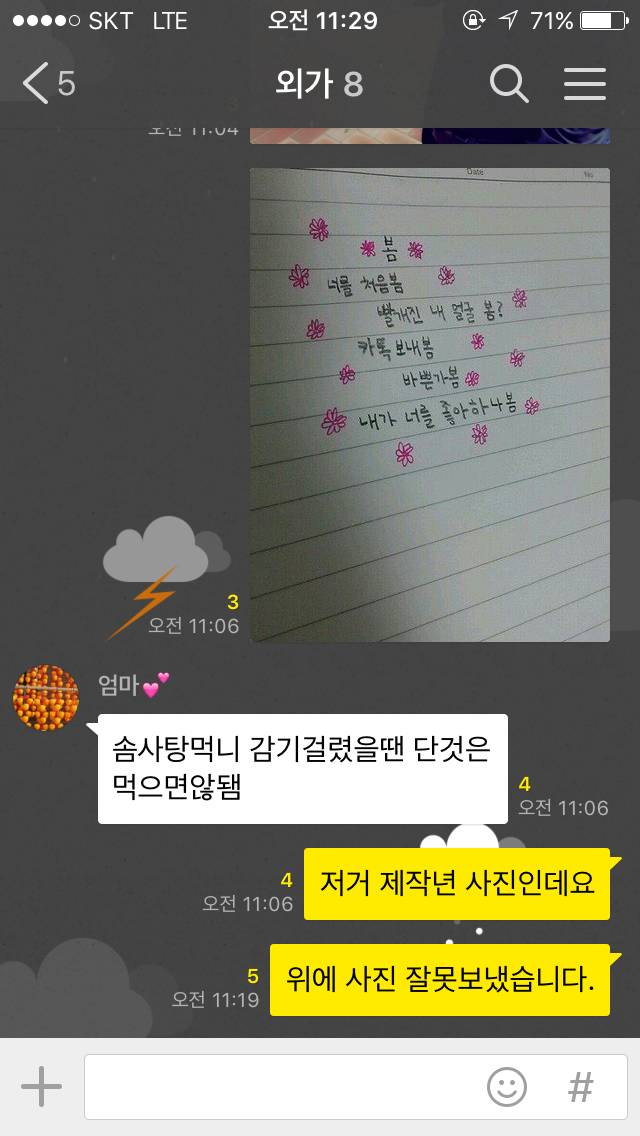 SKT LTE 오전 11:29 71%
5 외가 8
오전 11:04
Date No
봄
너를 처음봄
빨개진 내 얼굴 봄?
카톡 보내봄
바쁜가봄
내가 너를 좋아하나봄
3
오전 11:06
엄마💕
솜사탕먹니 감기걸렸을땐 단것은
먹으면않됌
4
오전 11:06
저거 제작년 사진인데요
4
오전 11:06
위에 사진 잘못보냈습니다.
5
오전 11:19
#